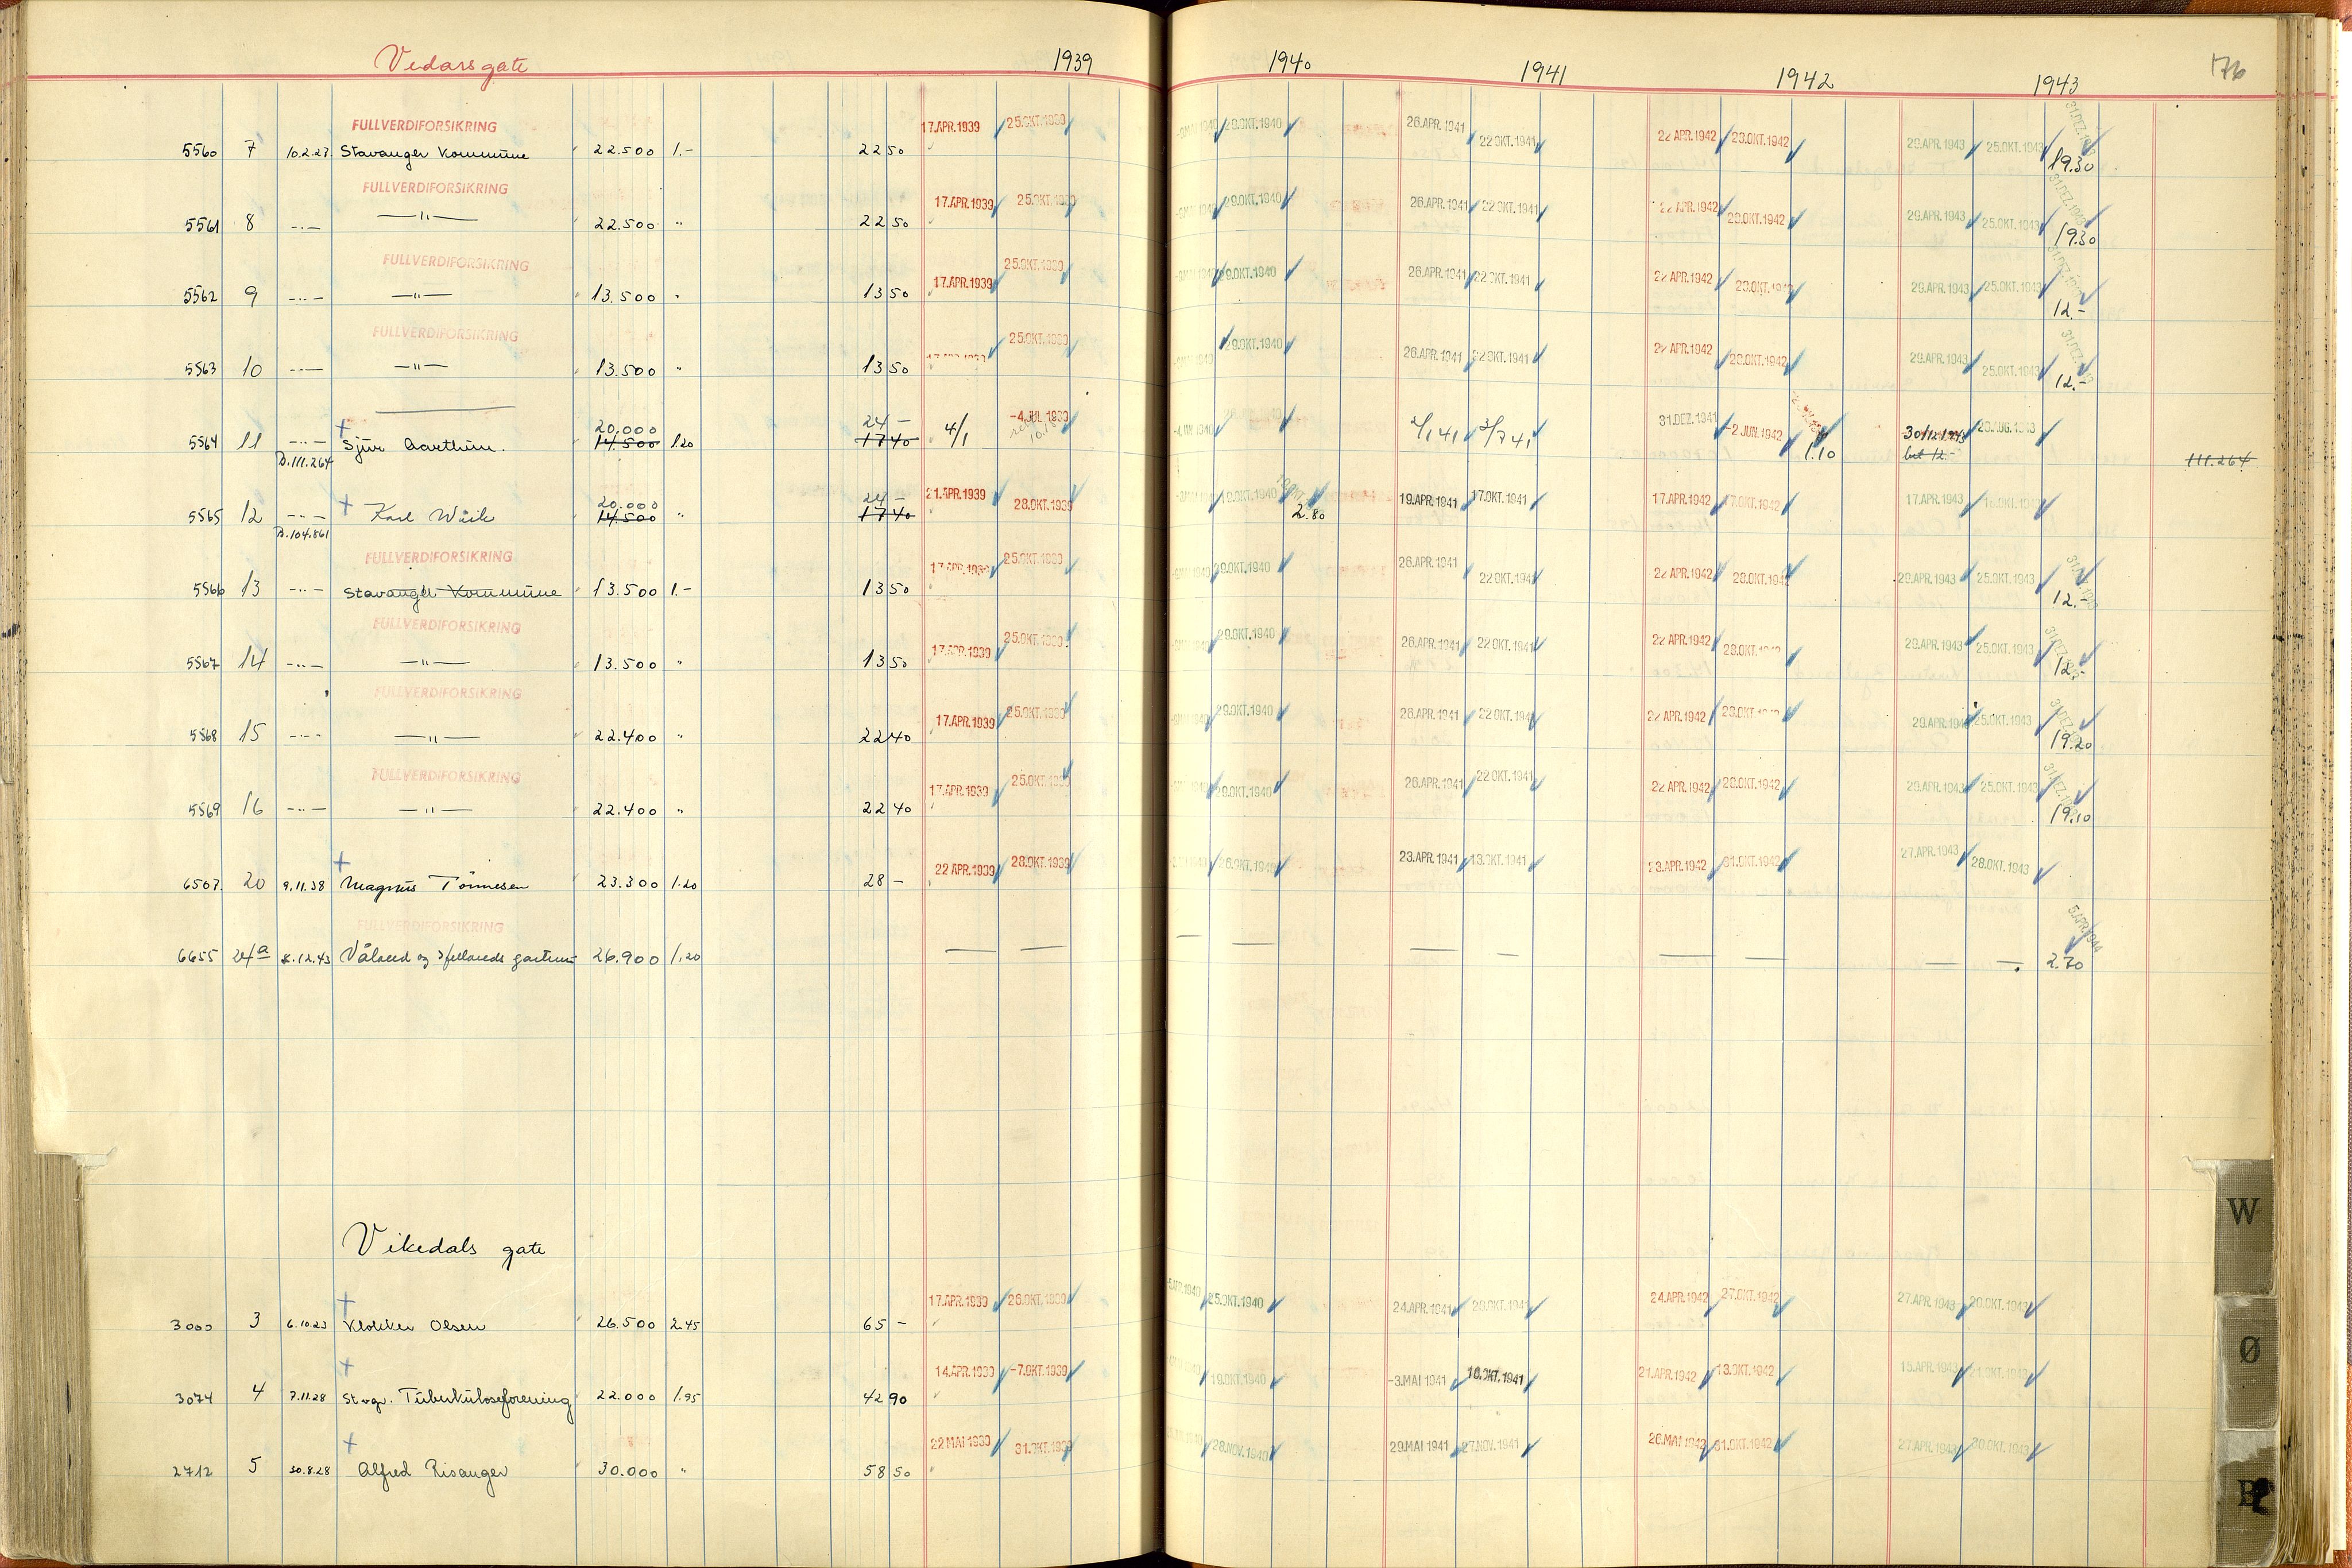 Vedarsgate 1939 1940 1941 1942 1943 176
FULLVERDIFORSIKRING 17.APR.1939 25.OKT.1939 29.OKT.1940 26.APR.1941 22 OKT.1941 22 APR.1942 23.OKT.1942 29.APR.1943 25.OKT.1943
5560 7 10.2.27 Stavanger Kommune 22.500 1.- 22 50 19.30
FULLVERDIFORSIKRING 17.APR.1939 25.OKT.1939 29.OKT.1940 26.APR.1941 22 OKT.1941 22 APR.1942 23.OKT.1942 29.APR.1943 25.OKT.1943
5561 8 -..- -"- 22.500 " 22 50 19.30
FULLVERDIFORSIKRING 17.APR.1939 25.OKT.1939 29.OKT.1940 26.APR.1941 22 OKT.1941 22 APR.1942 23.OKT.1942 29.APR.1943 25.OKT.1943
5562 9 -..- -"- 13.500 " 13 50 12.-
FULLVERDIFORSIKRING 25.OKT.1939 29.OKT.1940 26.APR.1941 22 OKT.1941 22 APR.1942 23.OKT.1942 29.APR.1943 25.OKT.1943
5563 10 -..- -"- 13.500 " 13 50 12.-
20.000 24 - 4/1 -4.JUL.1939 2/1 41 2/7 41 31.DEZ.1941 -2 JUN.1942 30/12 1943
5564 11 -..- Sjur Aarthun. 14.500 1.20 17 40 1.10 111.264
B.111.264
20.000 24 - 21.APR.1939 28.OKT.1939 19.APR.1941 17.OKT.1941 17.APR.1942 17.OKT.1942 17.APR.1943
5565 12 -..- Karl Wiik 14.500 " 17 40 2.80
B.104.861
FULLVERDIFORSIKRING 17.APR.1939 25.OKT.1939 29.OKT.1940 26.APR.1941 22 OKT.1941 22 APR.1942 23.OKT.1942 29.APR.1943 25.OKT.1943
5566 13 -..- Stavanger Kommune 13.500 1.- 13 50 12.-
FULLVERDIFORSIKRING 17.APR.1939 25.OKT.1939 29.OKT.1940 26.APR.1941 22 OKT.1941 22 APR.1942 29.APR.1943 25.OKT.1943
5567 14 -..- -"- 13.500 " 13 50 12.-
FULLVERDIFORSIKRING 17.APR.1939 25.OKT.1939 29.OKT.1940 26.APR.1941 22 OKT.1941 22 APR.1942 29.APR.1943 25.OKT.1943
5568 15 -..- -"- 22.400 " 22 40 19.20
FULLVERDIFORSIKRING 17.APR.1939 25.OKT.1939 29.OKT.1940 26.APR.1941 22 OKT.1941 22 APR.1942 23.OKT.1942 29.APR.1943 25.OKT.1943
5569 16 -..- -"- 22.400 " 22 40 19.10
22 APR.1939 28.OKT.1939 26.OKT.1940 23.APR.1941 13.OKT.1941 23.APR.1942 31.OKT.1942 27.APR.1943 28.OKT.1943
6507 20 9.11.38 Magnus Tönnesen 23.300 1.20 28 -
FULLVERDIFORSIKRING
6655 24a 8.12.43 Våland og 26.900 1.20 2.70
W
Vikedals gate
17.APR.1939 26.OKT.1939 25.OKT.1940 24.APR.1941 24.APR.1942 27.OKT.1942 27.APR.1943
3000 3 6.10.23 Klokker Olsen 26.500 2.45 65 -
Ø
14.APR.1939 -7.OKT.1939 19.OKT.1940 -3.MAI 1941 16.OKT.1941 21.APR.1942 13.OKT.1942 15.APR.1943
3074 4 7.11.28 Stvgr. Tuberkuloseforening 22.000 1.95 42 90
22 MAI 1939 31.OKT.1939 28.NOV.1940 29.MAI 1941 27.NOV.1941 26.MAI 1942 31.OKT.1942 27.APR.1943 30.OKT.1943
2712 5 30.8.28 Alfred Risanger 30.000 " 58 50